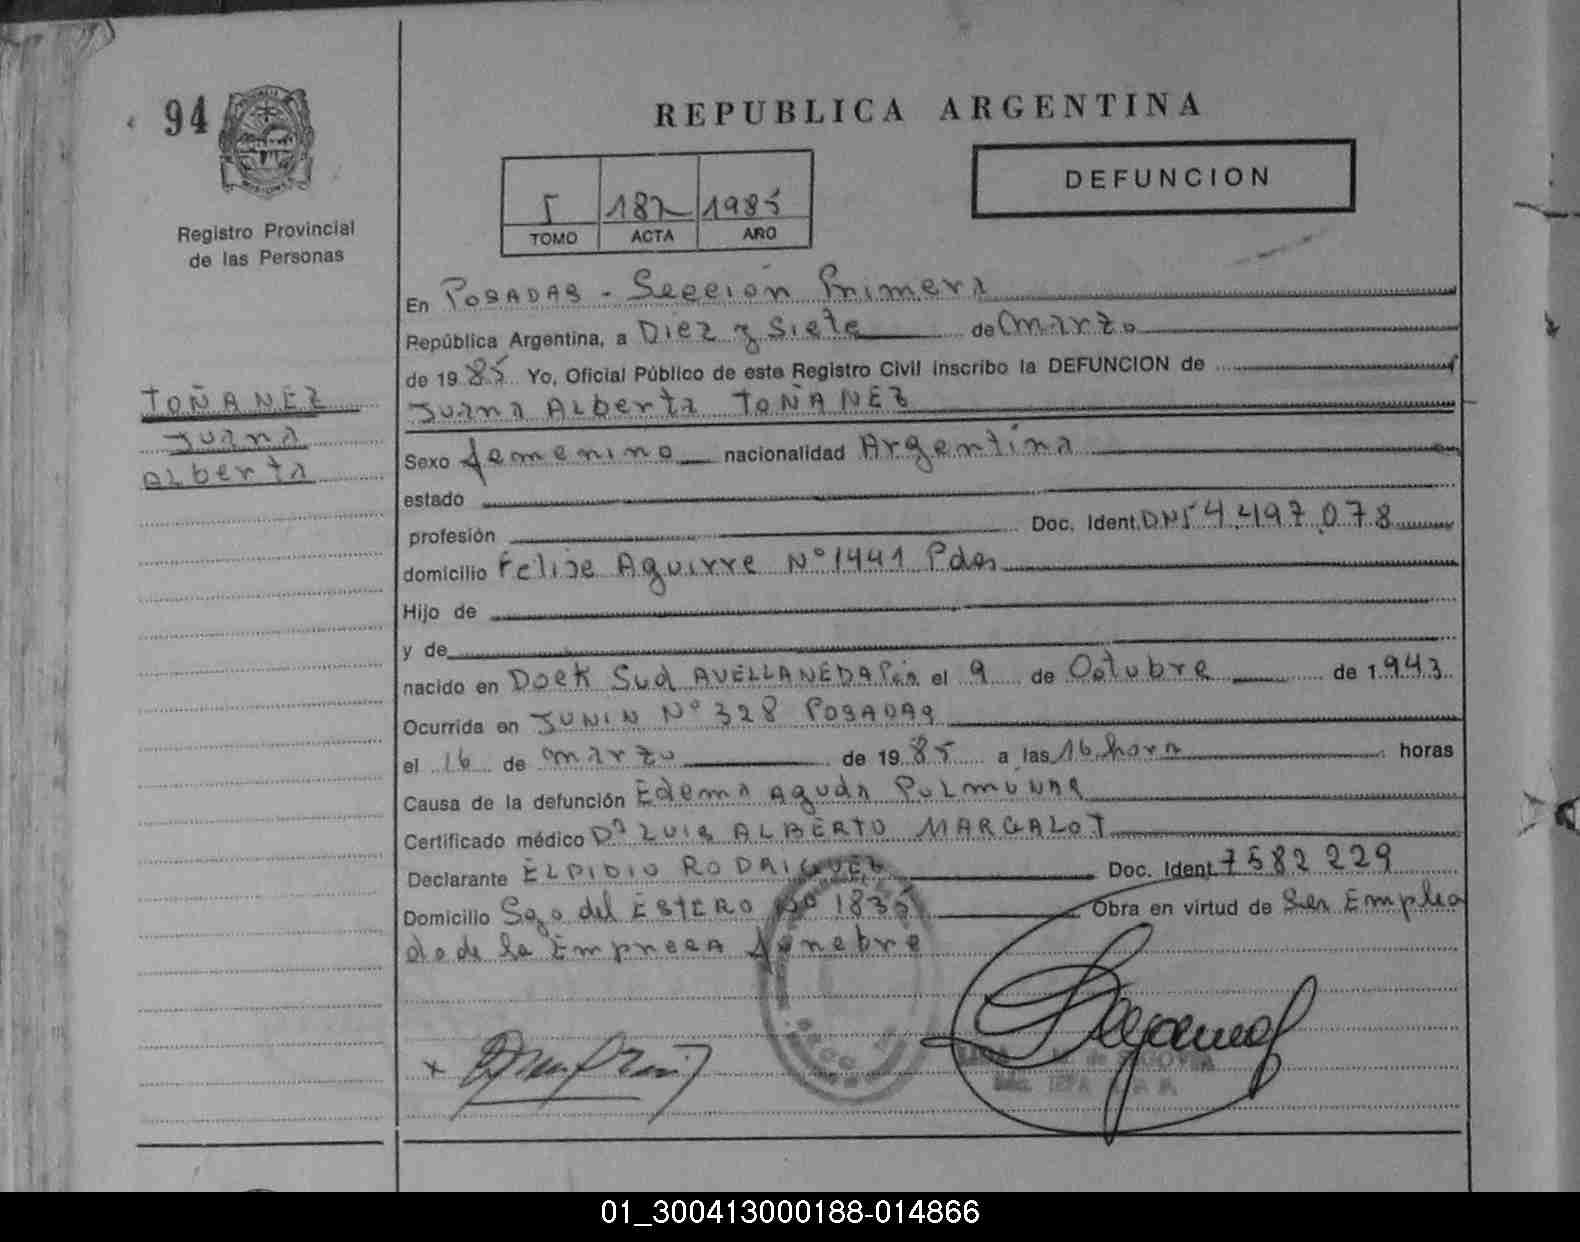 94
Registro Provincial
de las Personas
TOÑANEZ
Juana
Alberta
REPUBLICA ARGENTINA
DEFUNCION
5 187 1985
TOMO ACTA AÑO
En POSADAS - Sección Primera
República Argentina, a Diez y Siete de Marzo
de 1985 Yo, Oficial Público de este Registro Civil inscribo la DEFUNCION de
Juana Alberta TOÑANEZ
Sexo femenino nacionalidad Argentina
estado
profesión Doc. Ident. DNI 4.497.078
domicilio Felix Aguirre Nº 1441 Pdas
Hijo de
y de
nacido en Dock Sud AVELLANEDA el 9 de Octubre de 1943
Ocurrida en JUNIN Nº 328 POSADAS
el 16 de Marzo de 1985 a las 16 hora horas
Causa de la defunción Edema Aguda Pulmonar
Certificado médico Dr LUIS ALBERTO MARGALOT
Declarante ELPIDIO RODRIGUEZ Doc. Ident 7582229
Domicilio Sgo del ESTERO Nº 1835 Obra en virtud de Ser Emplea
do de la Empresa funebre
de SEGOVIA
01_300413000188-014866